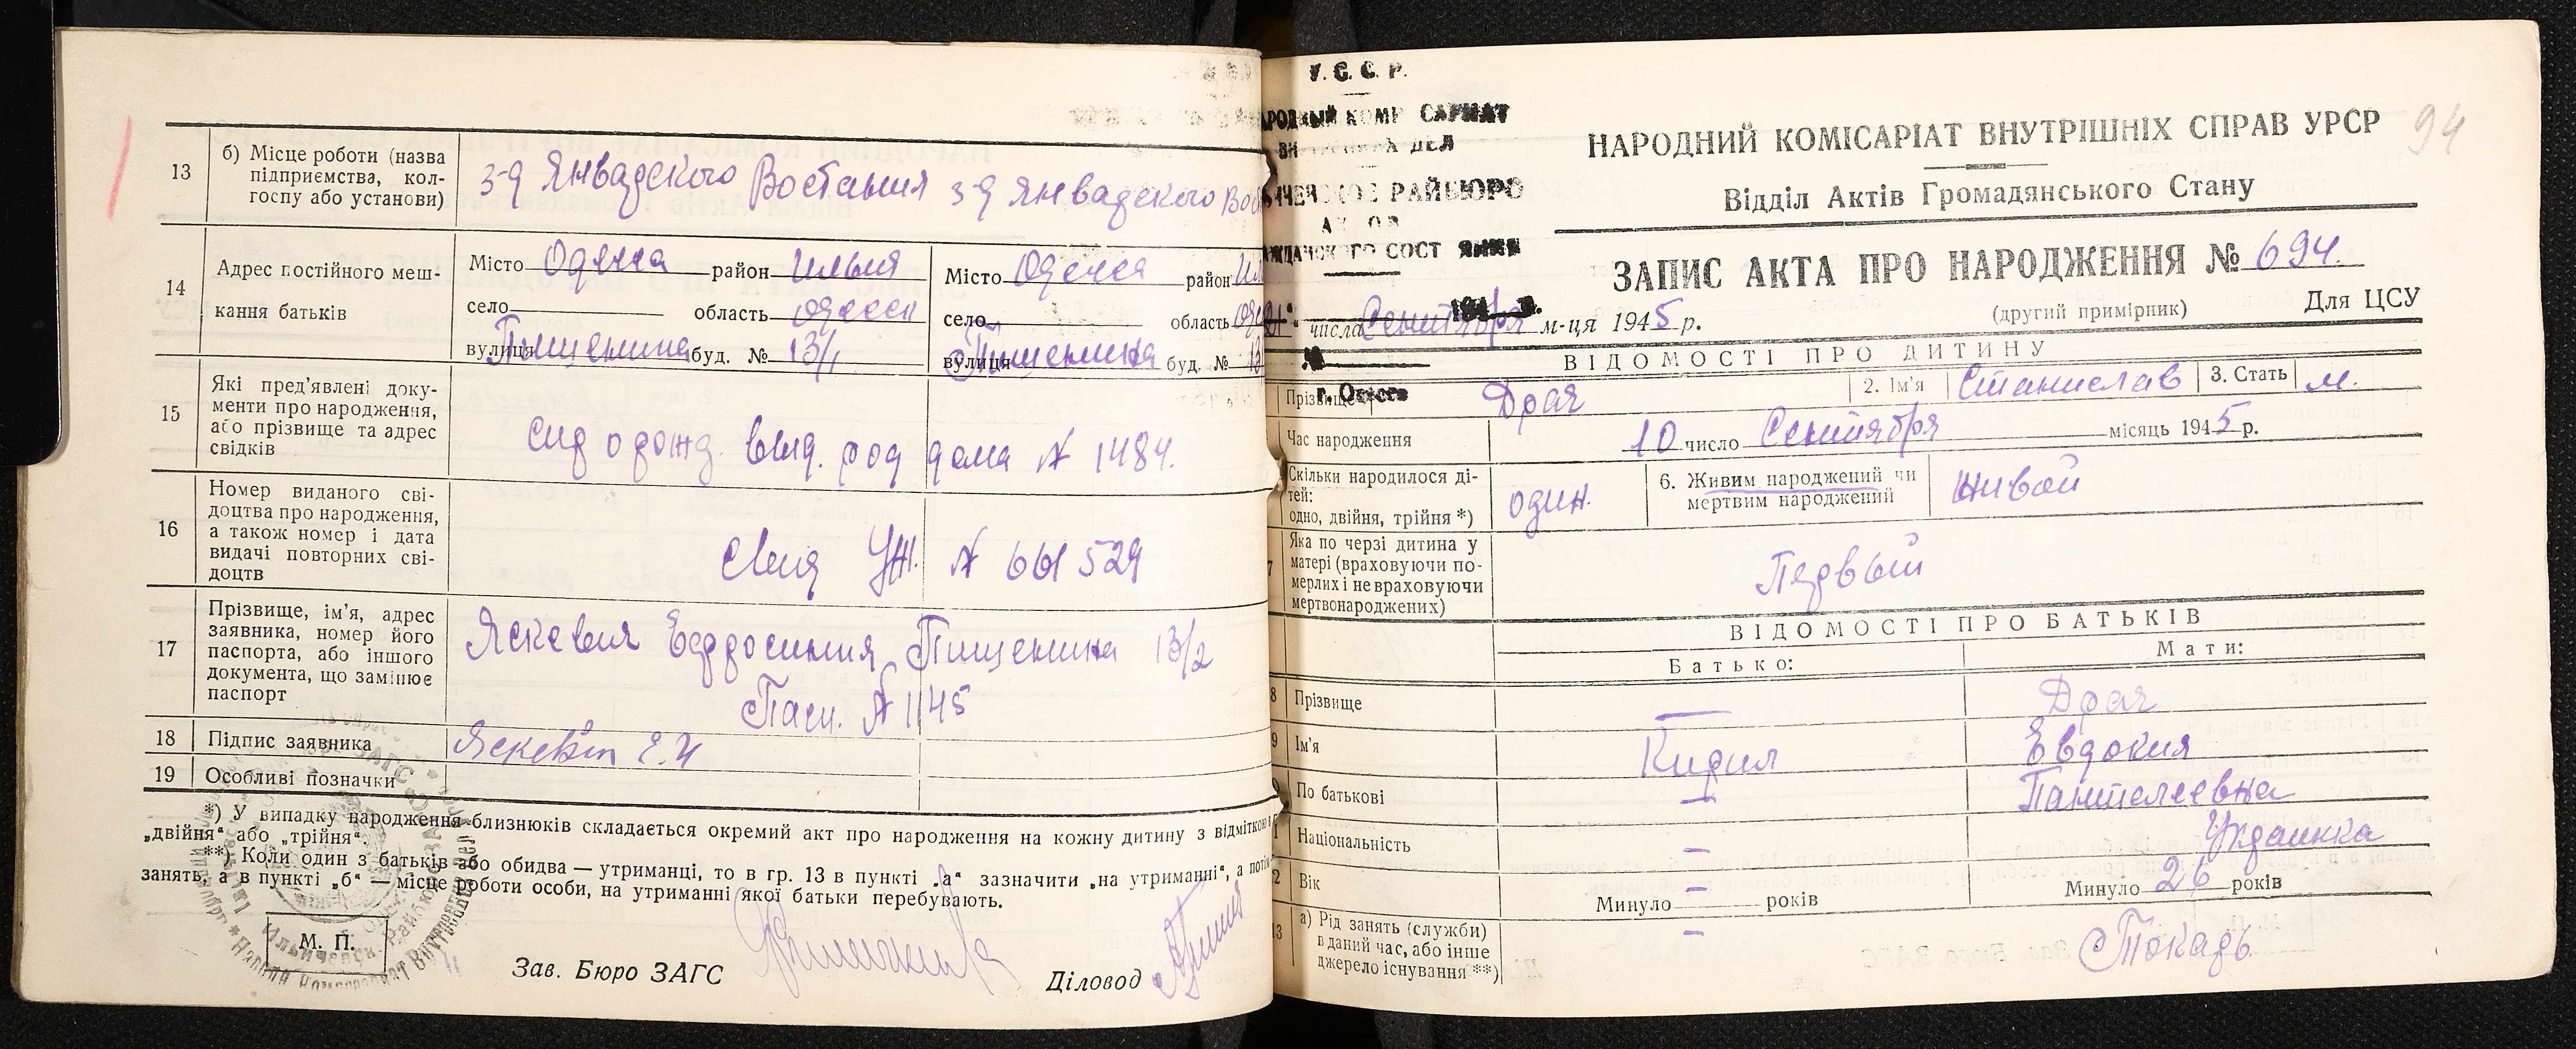 13
б) Місце роботи (назва
підприємства, кол-
госпу або установи)
з-д Январского Востания з-д Январского Вос
14
Адрес постійного меш-
кання батьків
Місто Одесса район Ильич
село область одесск
вулиця Пишенина буд. № 13/1
Місто Одесса район Ил
село область Оде
вулиця Пишенина буд. № 13
15
Які пред'явлені доку-
менти про народження,
або прізвище та адрес
свідків
выд. род дома № 1484.
16
Номер виданого сві-
доцтва про народження,
а також номер і дата
видачі повторних сві-
доцтв
УЖ. № 661529
17
Прізвище, ім'я, адрес
заявника, номер його
паспорта, або іншого
документа, що замінює
паспорт
Яскевич Ефросиния Пишенина 13/2
Пасп. № 1145
18
Підпис заявника
Яскевич Е.И
19
Особливі позначки
*) У випадку народження близнюків складається окремий акт про народження на кожну дитину з відміткою
„двійня“ або „трійня“.
**) Коли один з батьків або обидва — утриманці, то в гр. 13 в пункті „а“ зазначити „на утриманні“, а потім
занять, а в пункті „б“ — місце роботи особи, на утриманні якої батьки перебувають.
М. П.
Зав. Бюро ЗАГС
Діловод
У. С. С. Р.
НАРОДНЫЙ КОМИССАРИАТ
ВНУТРЕННИХ ДЕЛ
ИЛЬИЧЕВСКОЕ РАЙБЮРО
АКТОВ
ГРАЖДАНСКОГО СОСТОЯНИЯ
194 г.
№
г. Одесса
94
НАРОДНИЙ КОМІСАРІАТ ВНУТРІШНІХ СПРАВ УРСР
Відділ Актів Громадянського Стану
ЗАПИС АКТА ПРО НАРОДЖЕННЯ № 694.
(другий примірник) Для ЦСУ
21 числа Сентября м-ця 1945 р.
ВІДОМОСТІ ПРО ДИТИНУ
Прізвище Драч 2. Ім'я Станислав 3. Стать м.
Час народження 10 число Сентября місяць 1945 р.
Скільки народилося ді-
тей:
одно, двійня, трійня *)
один.
6. Живим народжений чи
мертвим народжений
живой
7
Яка по черзі дитина у
матері (враховуючи по-
мерлих і не враховуючи
мертвонароджених)
Первый
ВІДОМОСТІ ПРО БАТЬКІВ
Батько: Мати:
8 Прізвище — Драч
9 Ім'я Кирил Евдокия
По батькові — Пантелеевна
Національність — Украинка
2 Вік Минуло — років Минуло 26 років
13
а) Рід занять (служби)
в даний час, або інше
джерело існування **)
— Токарь